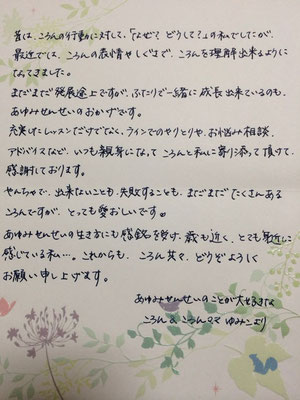 昔は、ころんの行動に対して、「なぜ? どうして?」の私でしたが、
最近では、ころんの表情やしぐさで、ころんを理解出来るように
なってきました。
まだまだ発展途上ですが、ふたりで一緒に成長出来ているのも、
あゆみせんせいのおかげです。
充実したレッスンだけでなく、ラインでのやりとりや、お悩み相談、
アドバイスなど、いつも親身になって ころんと私に寄り添って頂けて、
感謝しております。
やんちゃで、出来ないことも、失敗することも、まだまだたくさんある
ころんですが、とっても愛おしいです。
あゆみせんせいの生き方にも感銘を受け、歳も近く、とても身近に
感じている私…。これからも、ころん共々、どうぞよろしく
お願い申し上げます。
あゆみせんせいのことが大好きな
ころん&ころんママ ゆみこより